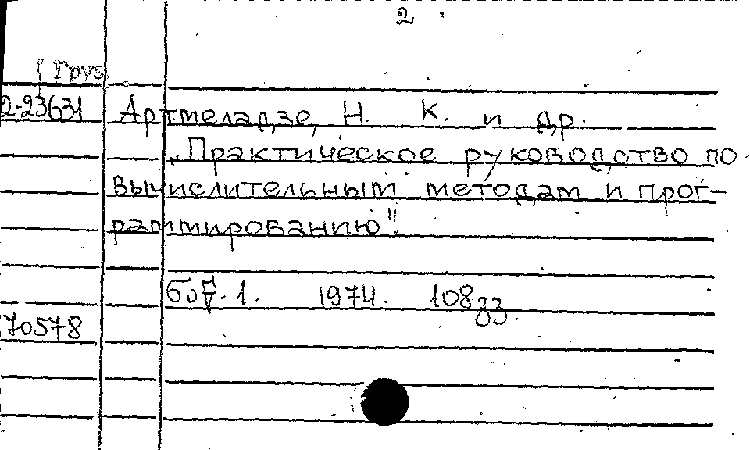 2.
Груз
2-23631 Артмеладзе, Н. К. и др.
„Практическое руководство по
вычислительным методам и прог-
раммированию".
1. 1974. 108
70578